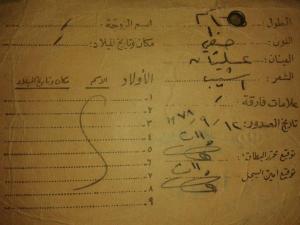 الطول :
اللون : حنطي
العينان : عسليتان
الشعر : اسيب
علامات فارقة :
تاريخ الصدور : ١٢ / ٩ / ١٩٧٨
توقيع محرر البطاقة :
توقيع أمين السجل
اسم الزوجة :
مكان وتاريخ الميلاد :
الأولاد
الاسم مكان وتاريخ الميلاد
١ -
٢ -
٣ -
٤ -
٥ -
٦ -
٧ -
٨ -
٩ -